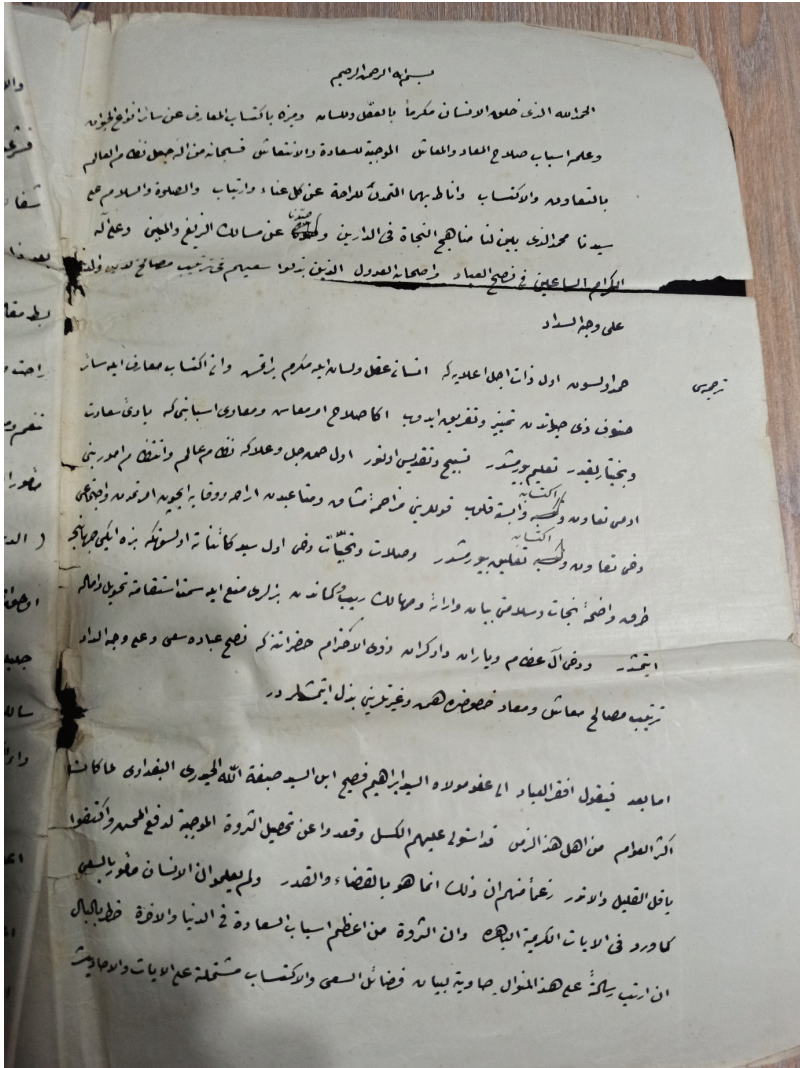 بسم الله الرحمن الرحيم
الحمد لله الذى خلق الانسان مكرما بالعقل واللسان وميزه باكتساب المعارف عن سائر انواع الحيوان
وعلمه اسباب صلاح المعاد والمعاش الموجبة للسعادة والانتعاش فسبحانه من اله جعل نظام العالم
بالتعاون والاكتساب واناط بهما التمدن للراحة عن كل عناء وارتياب والصلوة والسلام على
سيدنا محمد الذى بين لنا مناهج النجاة فى الدارين عن مسالك الزيغ والمين وعلى آله
الكرام الساعين فى نصح العباد واصحابه العدول الذين بذلوا سعيهم فى ترتيب مصالح الدين والدنيا
على وجه السداد
ترجمه سى
حمد اولسون اول ذات اجل اعلايه كه انسانى عقل ولسان ايله مكرم وانى اكتساب معارف ايله سائر
صنوف ذى حياتدن تمييز وتفريق ايدوب اكا صلاح امر معاش ومعادى اسبابنى كه بادئ سعادت
وبختياريلقدر تعليم بيورمشدر تسبيح وتقديس اولنور اول جل وعلا كه نظام عالم وانتظام امور بنى
ادمى تعاون واكتسابه وابسته قيلوب قوللرينى مزاحمۀ مشاق ومتاعبدن اراحه ووقايه ايچون امر تمدن واجتماعى
دخى تعاون واكتسابه تعليق بيورمشدر وصلات وتحيّات دخى اول سيد كائناته اولسونكه بزه ايكى جهانجه
طرق واضحۀ نجات وسلامتى بيان وارائه ومهالك ريب وكماندن بزلرى منع ايله سمت استقامته تحويل واماله
ايتمشدر ودخى آل عظام وياران ذوى الاحترام حضراتنه كه نصح عباده سعى وعلى وجه السداد
ترتيب مصالح معاش ومعاد خصوصنده همت وغيرتلرينى بذل ايتمشلردر
اما بعد فيقول افقر العباد الى عفو مولاه السيد ابراهيم فصيح ابن السيد صبغة الله الحيدرى البغدادى لما كان
اكثر العوام من اهل هذا الزمن قد استولى عليهم الكسل وقعدوا عن تحصيل الثروة الموجبة لدفع المحن واكتفوا
باقل القليل والانزر زعما منهم ان ذلك انما هو بالقضاء والقدر ولم يعلموا ان الانسان مأمور بالسعى
كما ورد فى الايات الكريمة الباهره وان الثروة من اعظم اسباب السعادة فى الدنيا والاخرة خطر بالبال
ان ارتب رسالة على هذا المنوال حاوية لبيان فضائل السعى والاكتساب مشتملة على الايات والاحاديث